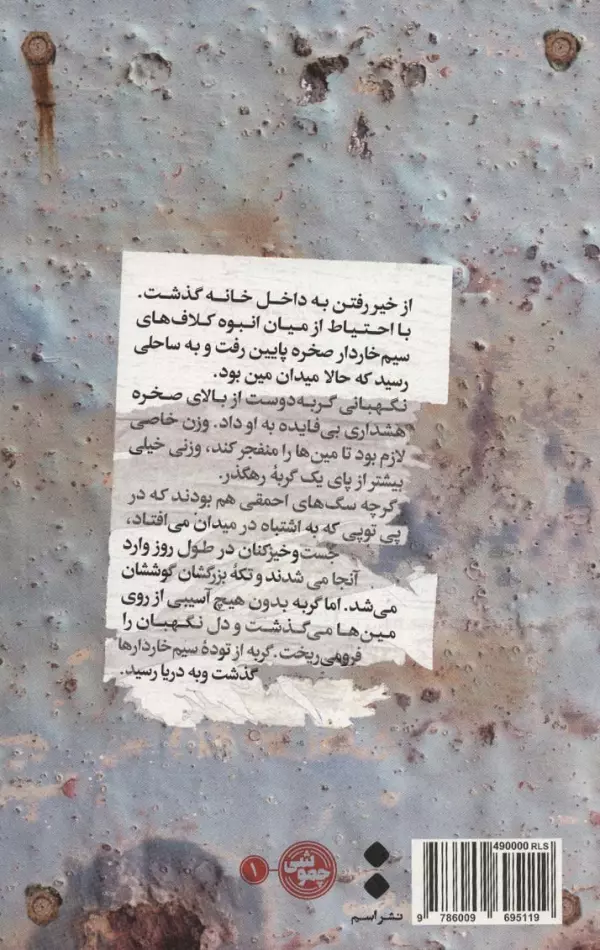 از خیر رفتن به داخل خانه گذشت.
با احتیاط از میان انبوه کلاف‌های
سیم‌خاردار صخره پایین رفت و به ساحلی
رسید که حالا میدان مین بود.
نگهبانی گربه‌دوست از بالای صخره
هشداری بی‌فایده به او داد. وزن خاصی
لازم بود تا مین‌ها را منفجر کند، وزنی خیلی
بیشتر از پای یک گربهٔ رهگذر.
گرچه سگ‌های احمقی هم بودند که در
پی توپی که به اشتباه در میدان می‌افتاد،
جَست‌وخیزکنان در طول روز وارد
آنجا می شدند و تکهٔ بزرگشان گوششان
می‌شد. اما گربه بدون هیچ آسیبی از روی
مین‌ها می‌گذشت و دل نگهبان را
فرومی‌ریخت. گربه از تودهٔ سیم‌خاردارها
گذشت وبه دریا رسید.
۱
490000 RLS
نشر اسم
9 786009 695119